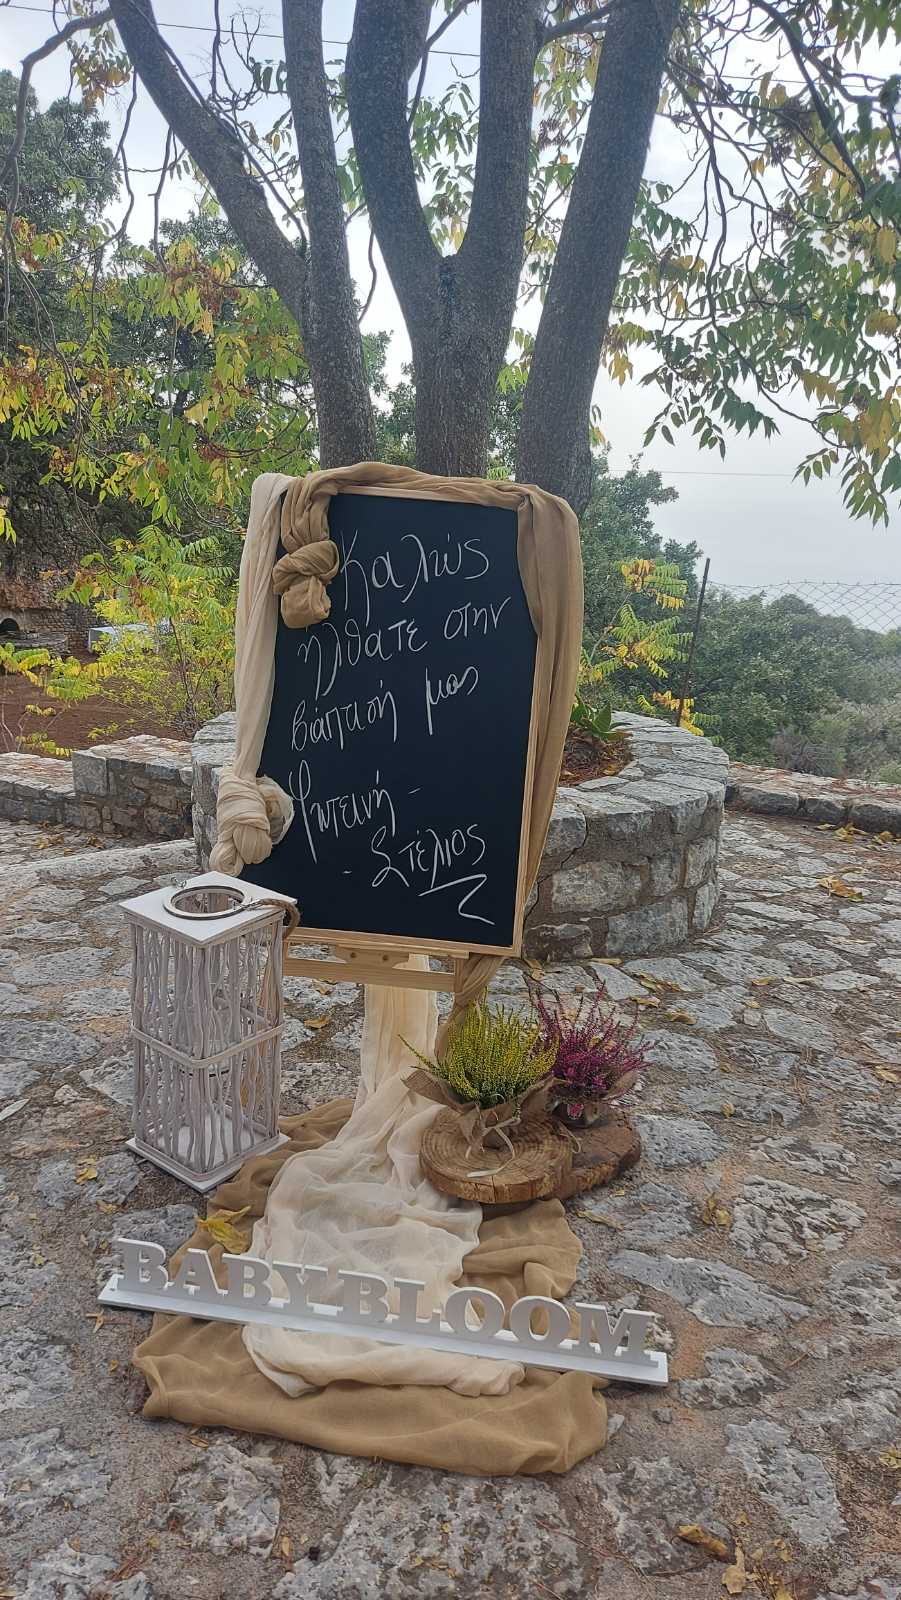 Καλώς
ήλθατε στην
βάπτισή μας
Φωτεινή -
- Στέλιος
BABY BLOOM